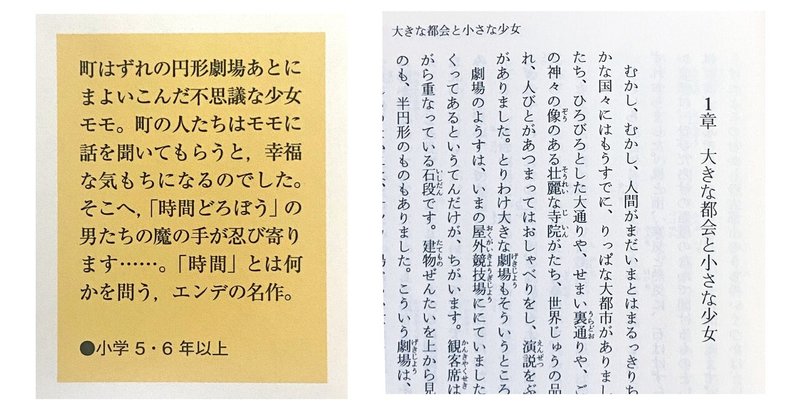 町はずれの円形劇場あとに
まよいこんだ不思議な少女
モモ。町の人たちはモモに
話を聞いてもらうと，幸福
な気もちになるのでした。
そこへ，「時間どろぼう」の
男たちの魔の手が忍び寄り
ます……。「時間」とは何
かを問う，エンデの名作。
●小学5・6年以上
大きな都会と小さな少女
1章　大きな都会と小さな少女
むかし、むかし、人間がまだいまとはまるっきりち
かな国々にはもうすでに、りっぱな大都市がありまし
たち、ひろびろとした大通りや、せまい裏通りや、ご
の神々の像のある壮麗な寺院がたち、世界じゅうの品
れ、人びとがあつまってはおしゃべりをし、演説をぶ
がありました。とりわけ大きな劇場もそういうところ
劇場のようすは、いまの屋外競技場ににていました
くってあるというてんだけが、ちがいます。観客席は
がら重なっている石段です。建物ぜんたいを上から見
のも、半円形のものもありました。こういう劇場は、